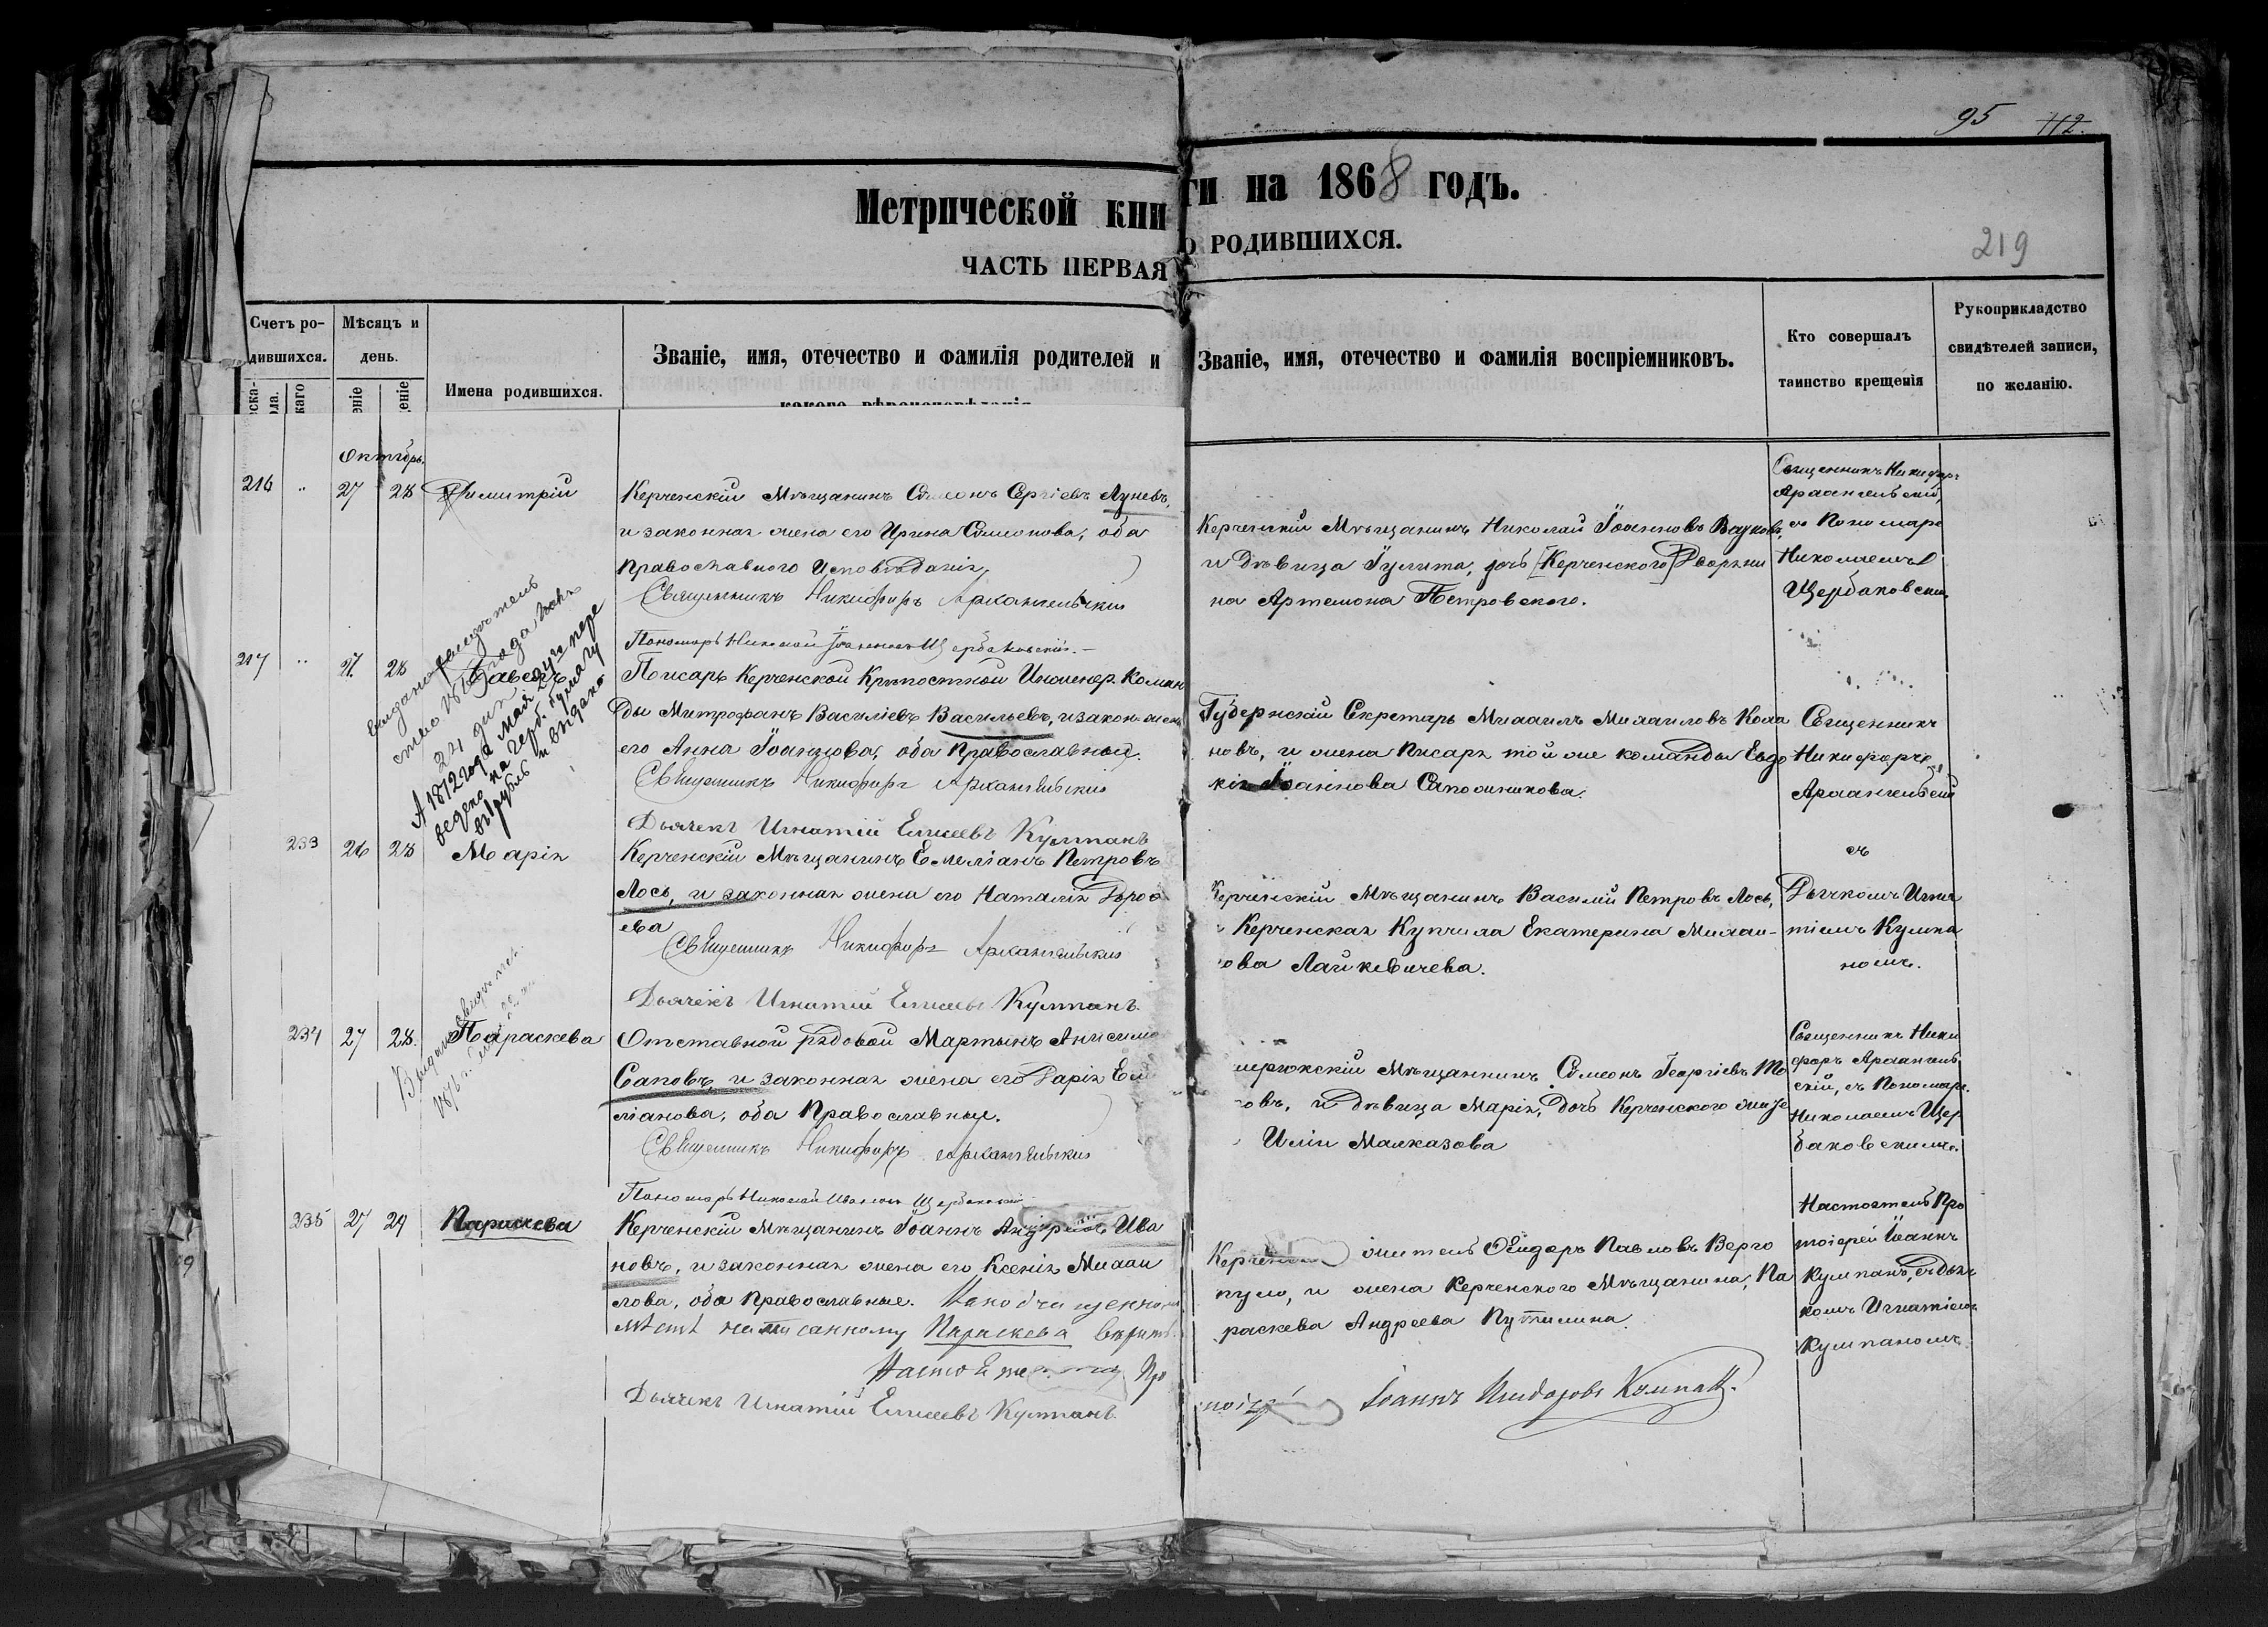 95 112.
Метрической кни ги на 1868 годъ.
ЧАСТЬ ПЕРВАЯ О РОДИВШИХСЯ.
219
Счетъ ро-
дившихся.
Мѣсяцъ и
день.
Имена родившихся.
Званіе, имя, отечество и фамилія родителей и
Званіе, имя, отечество и фамилія воспріемниковъ.
Кто совершалъ
таинство крещенія
Рукоприкладство
свидѣтелей записи,
по желанію.
Октябрь.
216 „ 27 28 Димитрій
Керченскій Мѣщанинъ Сѵмеонъ Сергіевъ Луневъ,
и законная жена его Ирина Сѵмеонова, оба
Православнаго Исповѣданія,
Священникъ Никифоръ Архангельскій
Пономарь Николай Іоанновъ Щербаковскій.
Керченскій Мѣщанинъ Николай Іоанновъ
и Дѣвица Іулита, дочь [Керченского] Дворяни
на Артемона Петровского.
Священникъ Никифоръ
Архангельскій,
съ Пономаремъ
Николаемъ
Щербаковским
217 „ 27. 28
Писарь Керченской Крѣпостной Инженер. Коман
ды Митрофанъ Василіевъ Васильевъ, и закон. жена
его Анна Іоаннова, оба Православные.
Священникъ Никифоръ Архангельскій
Дьячекъ Игнатій Елисеевъ Кумпанъ
24
А 1872 года мая
ведено на герб. бумагу
въ рубль и выдано
Губернскій Секретарь Михаилъ Михаиловъ
новъ, и жена Писаря той же команды Евдо
кія Іоаннова Сапожникова.
Священникъ
Никифоръ
Архангельскій
съ
Дьячкомъ Игна
тіемъ Кумпа
номъ.
233 26 28 Марія
Керченскій Мѣщанинъ Емеліанъ Петровъ
Лось, и законная жена его Наталія Дороѳ
еева
Священникъ Никифоръ Архангельскій
Дьячекъ Игнатій Елисеевъ Кумпанъ.
Керченскій Мѣщанинъ Василій Петровъ Лось,
Керченская Купчиха Екатерина Михаи-
ова Лайкевичева.
234 27 28. Параскева
Отставной рядовой Мартынъ Анисимо
Саповъ, и законная жена его Дарія Еме
ліанова, оба Православные.
Священникъ Никифоръ Архангельскій
Пономарь Николай Ивановъ Щербаковскій
Мѣщанинъ Сѵмеонъ Георгіевъ
овъ, и дѣвица Марія, дочь Керченского
Иліи
Священникъ Ники
форъ Архангель
скій, съ Пономаре.
Николаемъ Щер
баковскимъ.
235 27 29 Параскева
Керченскій Мѣщанинъ Іоаннъ Андреевъ Ива
новъ, и законная жена его Ксенія Михаи
лова, оба Православные. По подчищенному
мѣстѣ написанному Параскева вѣрить.
Настоятель Про
тоіерей Іоаннъ Исидоровъ Кумпанъ.
Дьячекъ Игнатій Елисеевъ Кумпанъ.
житель Ѳеодоръ Павловъ Верго
пуло, и жена Керченского Мѣщанина, Па
раскева Андреева Путилина.
Настоятель Про
тоіерей Іоаннъ
Кумпанъ, съ Дьяч
комъ Игнатіемъ
Кумпаномъ.